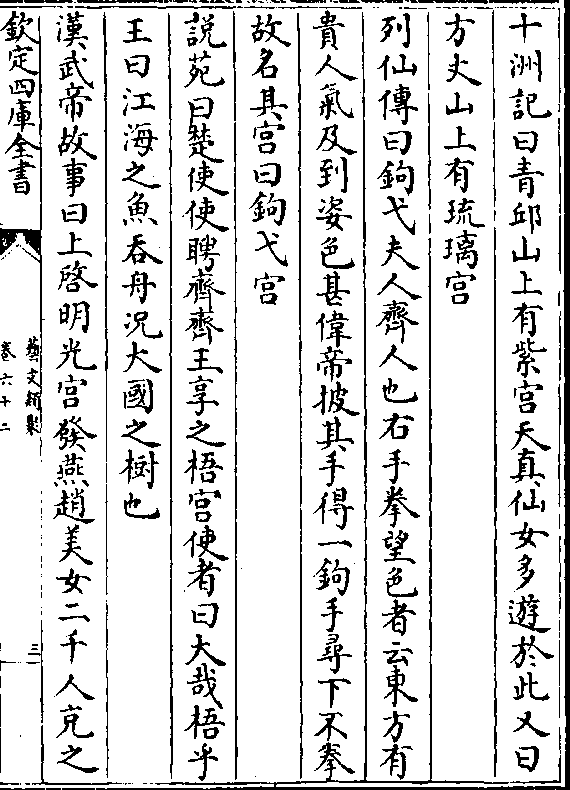 十洲記曰青邱山上有紫宫天真仙女多遊於此又曰
方丈山上有琉璃宫
列仙傳曰鉤弋夫人齊人也右手拳望色者云東方有
貴人氣及到姿色甚偉帝披其手得一鉤手尋下不拳
故名其宫曰鉤弋宫
說苑曰楚使使聘齊齊王享之梧宫使者曰大哉梧乎
王曰江海之魚吞舟况大國之樹也
漢武帝故事曰上啓明光宫發燕趙美女二千人充之
欽定四庫全書
藝文類聚
卷六十二
三